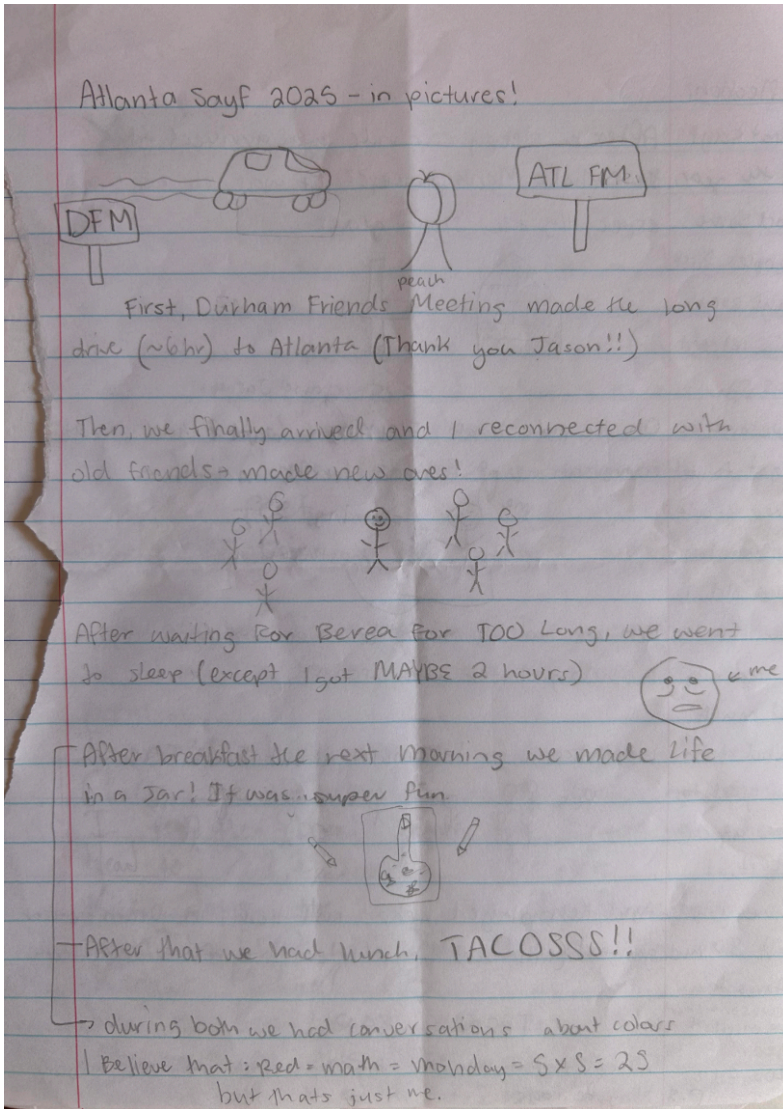 Atlanta Sayf 2025 - in pictures!
DFM
ATL FM
peach
First, Durham Friends Meeting made the long
drive (~6hr) to Atlanta (Thank you Jason!!)
Then, we finally arrived and I reconnected with
old friends + made new ones!
After waiting for Berea for TOO Long, we went
to sleep (except I got MAYBE 2 hours)
← me
After breakfast the next morning we made life
in a Jar! It was super fun.
After that we had lunch, TACOSSS!!
→ during both we had conversations about colors
I Believe that: Red = math = Monday = 5 x 5 = 25
but thats just me.